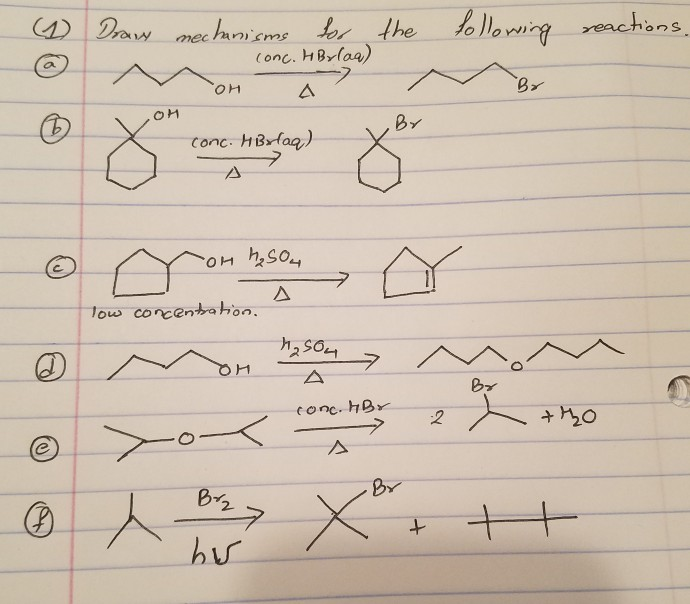 (1) Draw mechanisms for the following reactions.
(a) OH conc. HBr(aq) Δ Br
(b) OH conc. HBr(aq) Δ Br
(c) OH H₂SO₄ Δ
low concentration.
(d) OH H₂SO₄ Δ O
(e) O conc. HBr Δ 2 Br + H₂O
(f) Br₂ hν Br +